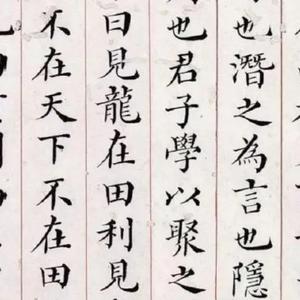 也潛之為言也隱
也君子學以聚之
曰見龍在田利見
不在天下不在田